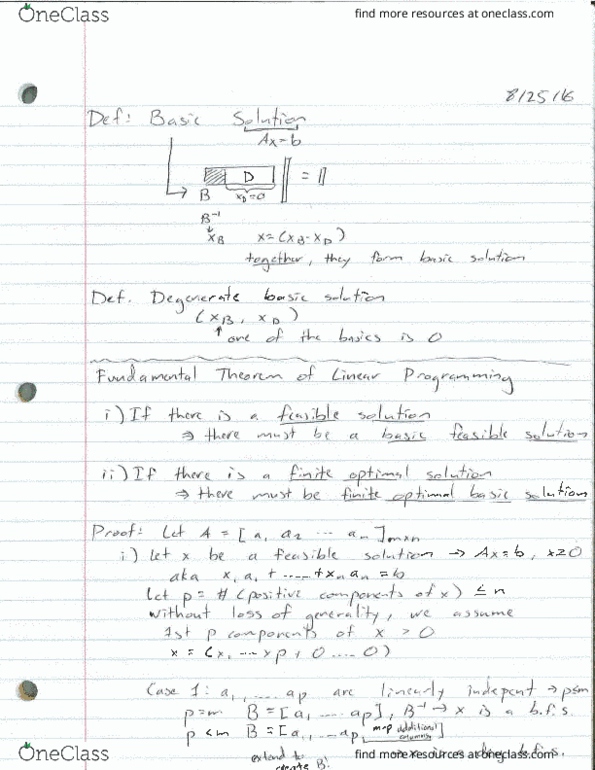 OneClass
find more resources at oneclass.com
8/25/16
Def: Basic Solution
Ax=b
D
= 
B
x_D=0
B⁻¹
x_B x=(x_B-x_D)
together, they form basic solution
Def. Degenerate basic solution
(x_B, x_D)
↑ one of the basics is 0
Fundamental Theorem of Linear Programming
i) If there is a feasible solution
⇒ there must be a basic feasible solution
ii) If there is a finite optimal solution
⇒ there must be finite optimal basic solution
Proof: Let A = [a₁ a₂ ... aₙ]ₘₓₙ
i) let x be a feasible solution → Ax=b, x≥0
aka x₁a₁ + ..... + xₙaₙ = b
Let p = # (positive components of x) ≤ n
Without loss of generality, we assume
1st p components of x > 0
x = (x₁ ... xp, 0 .... 0)
Case 1: a₁, .... ap are linearly indepent → p≤m
p=m B = [a₁ .... ap], B⁻¹ → x is a b.f.s.
p<m B = [a₁ ... ap, m-p additional columns]
extend to
create B!
OneClass
find more resources at oneclass.com